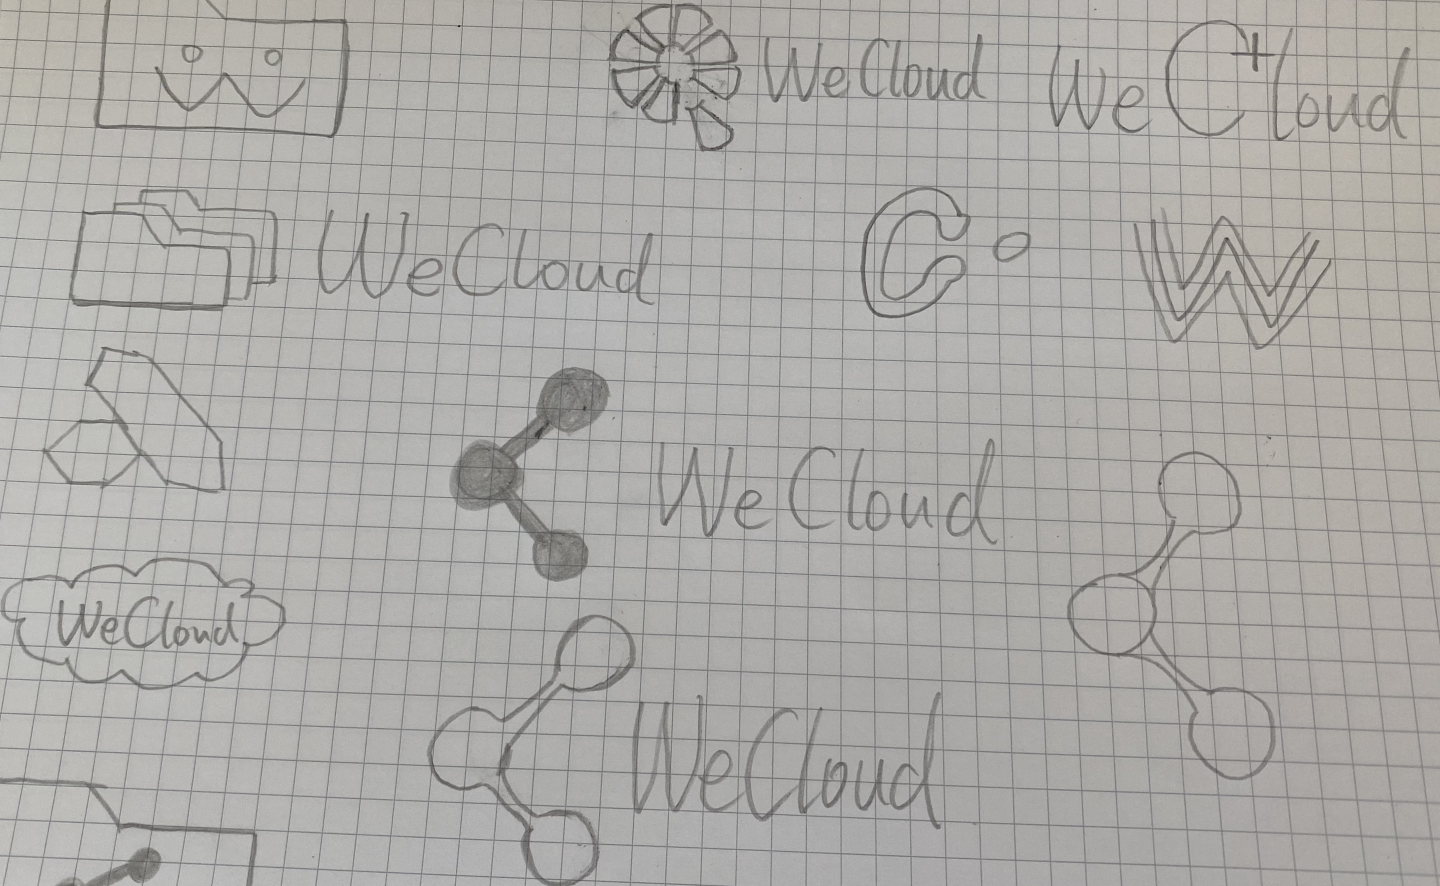 WeCloud
WeC+loud
WeCloud
C
W
WeCloud
WeCloud
WeCloud